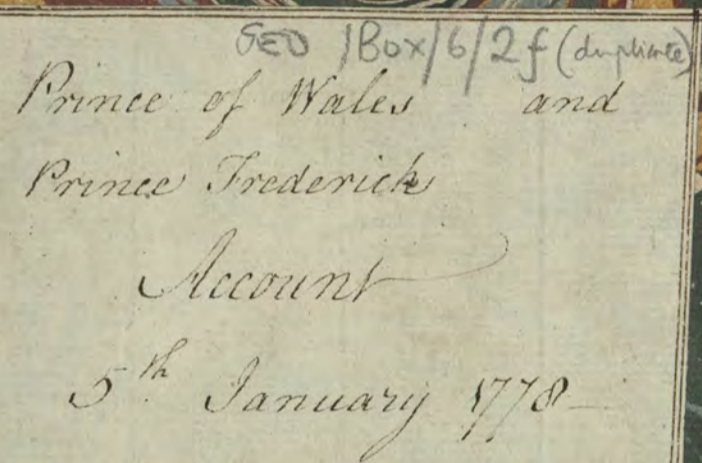 GEO /Box/6/2f (duplicate)
Prince of Wales and
Prince Frederick
Account
5th January 1778